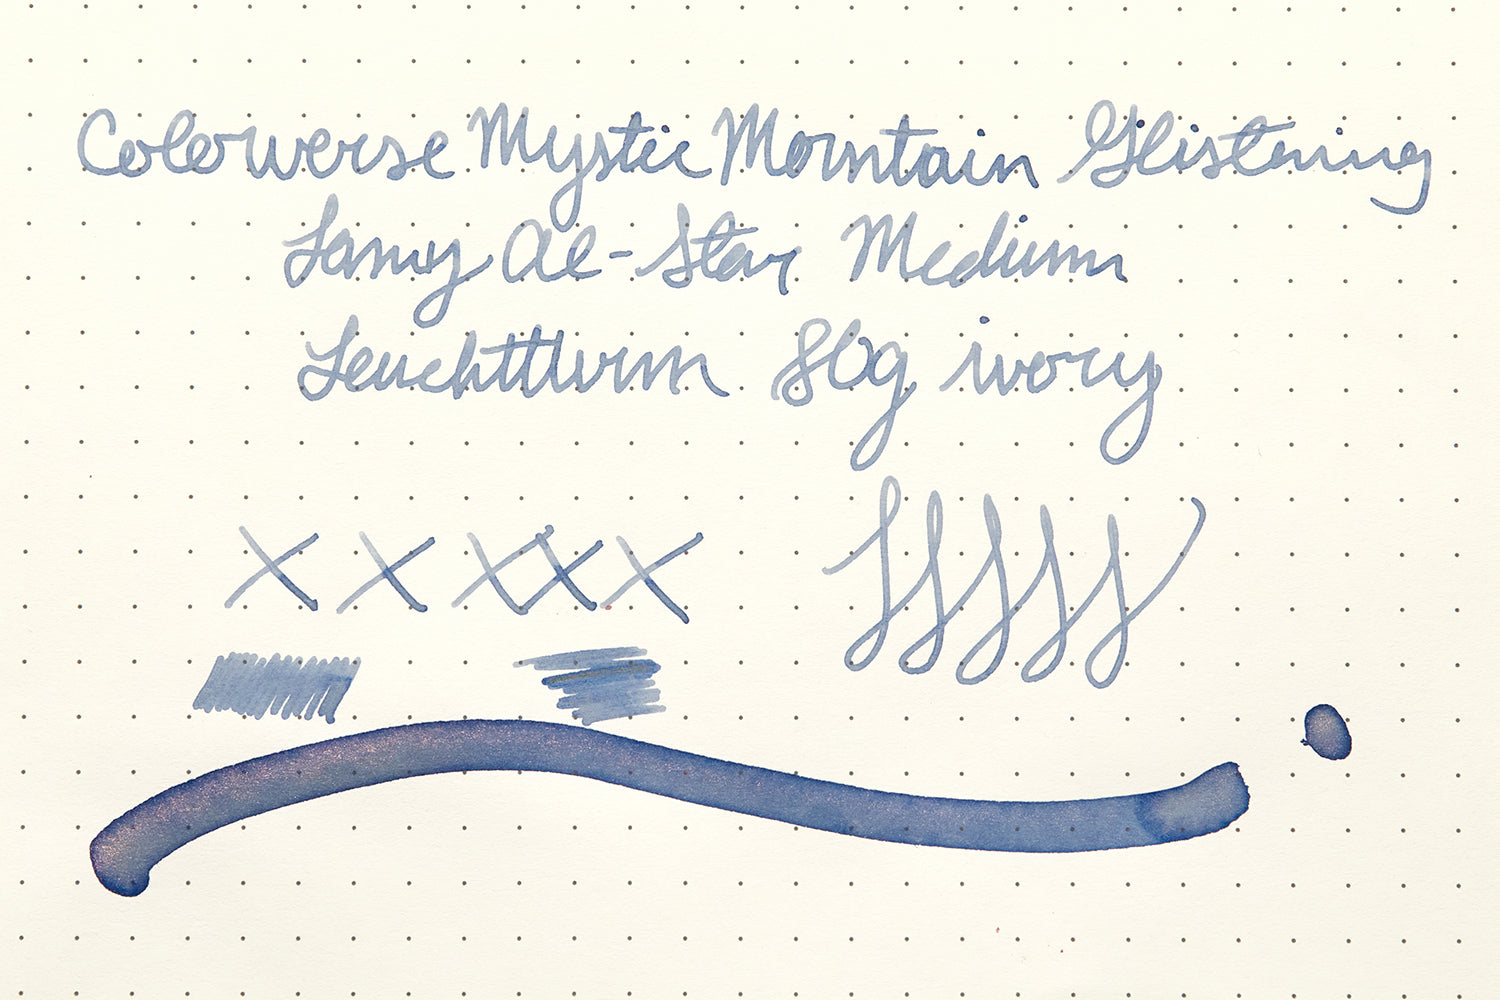 Colorverse Mystic Mountain Glistening
Lamy Al-Star Medium
Leuchtturm 80g ivory
x x x x x x